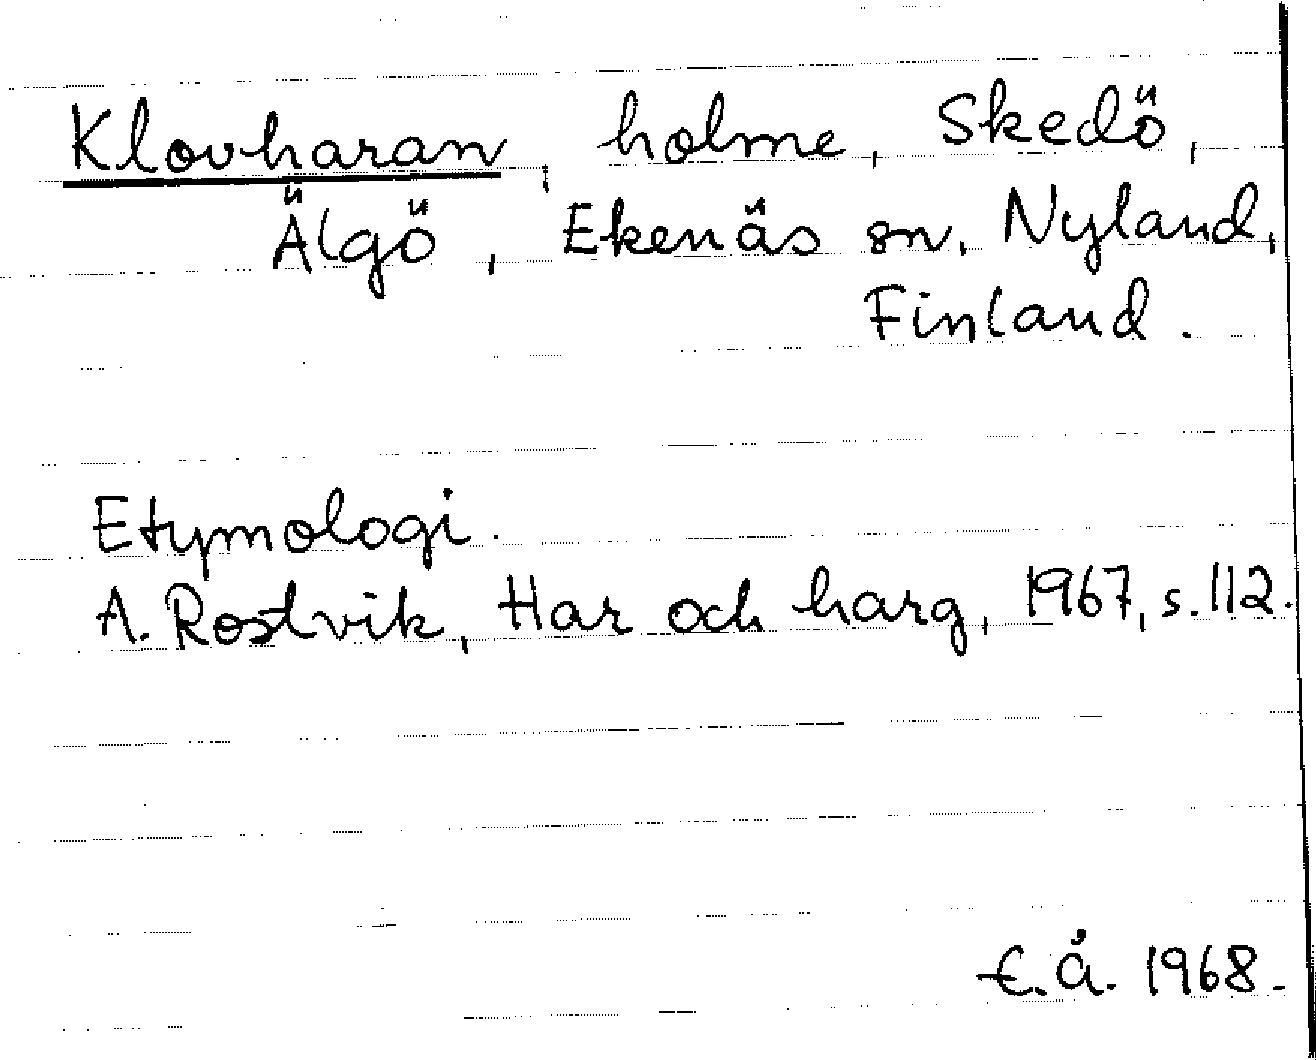 Klovharan, holme, Skedö,
Älgö, Ekenäs sn, Nyland,
Finland.
Etymologi.
A. Rostvik, Har och harg, 1967, s. 112.
E. Å. 1968.